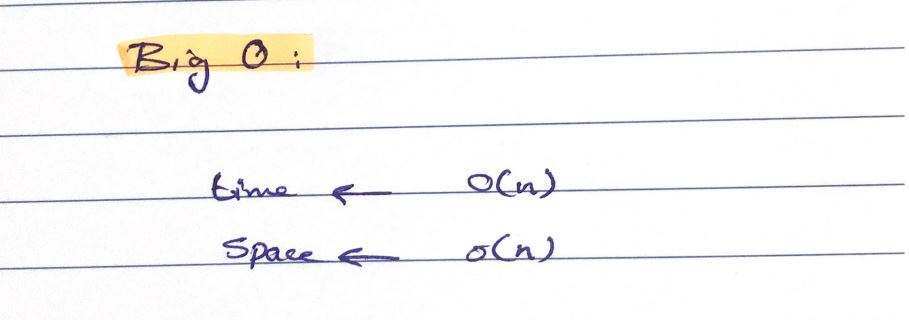 Big O :
time ← O(n)
Space ← O(n)